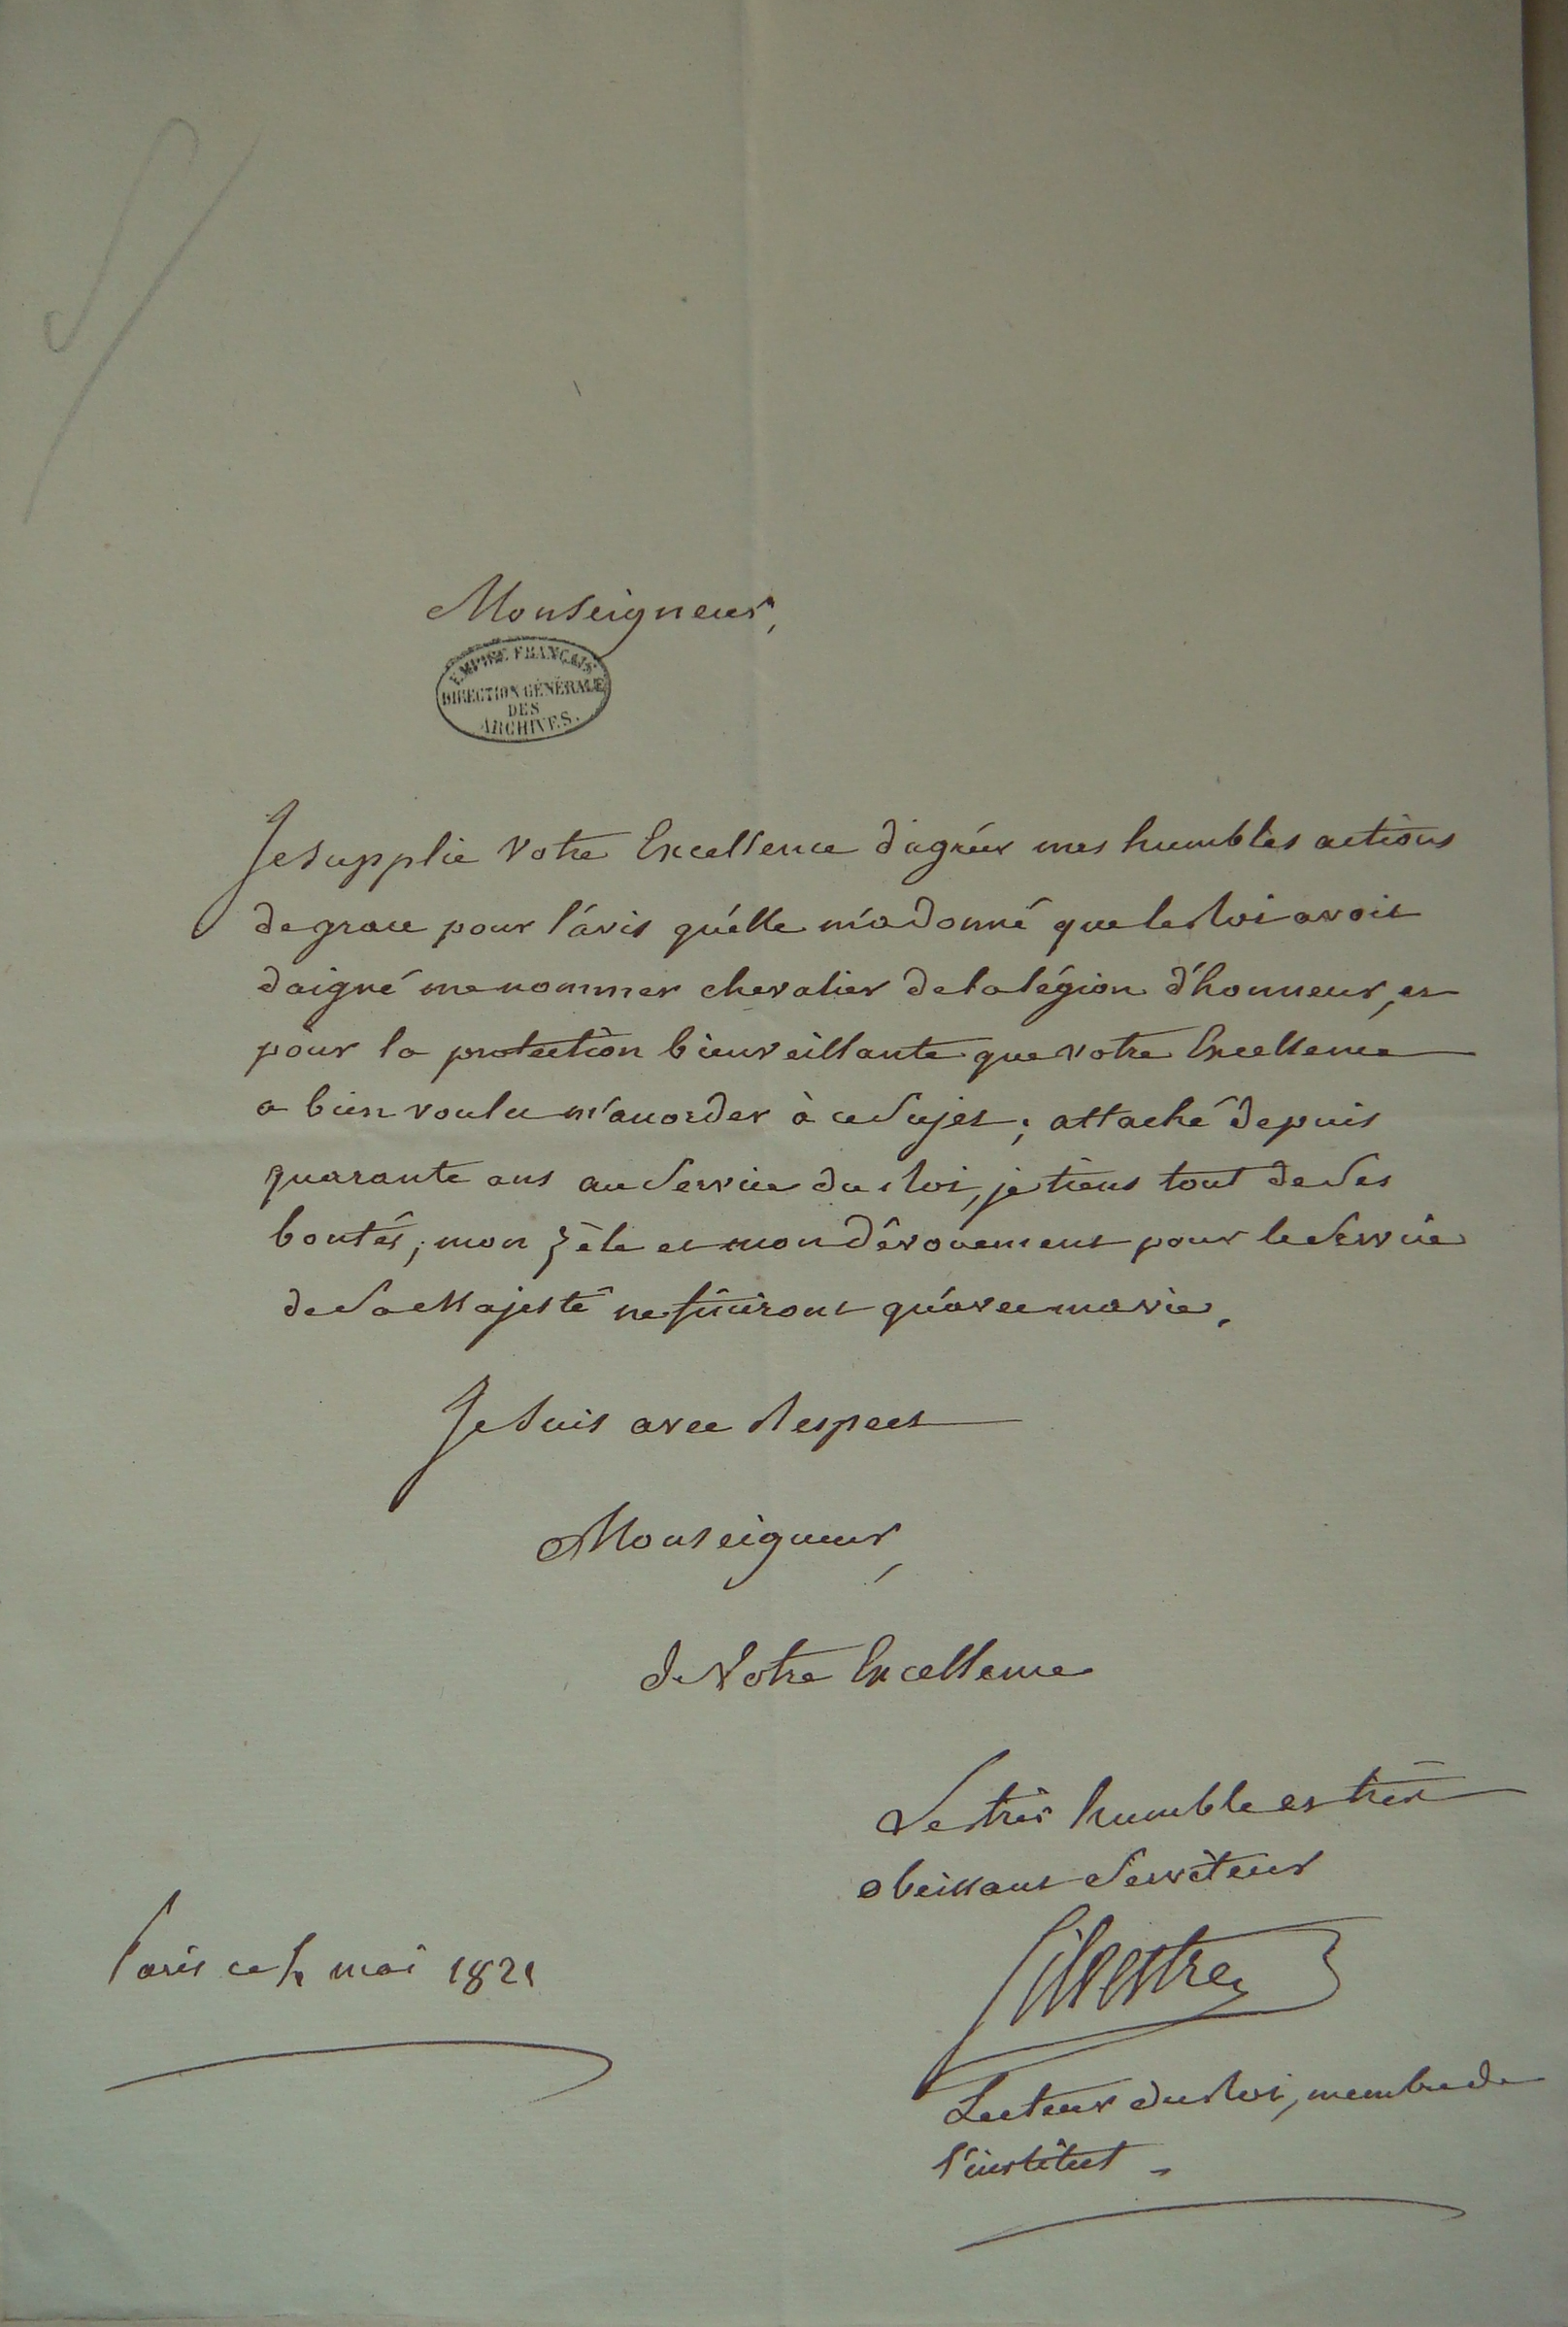 Monseigneur,
EMPIRE FRANÇAIS
DIRECTION GÉNÉRALE
DES
ARCHIVES.
Je supplie Votre Excellence d'agréer mes humbles actions
de grace pour l'avis qu'elle m'a donné que le Roi avoit
daigné me nommer chevalier de la légion d'honneur, et
pour la protection bienveillante que votre Excellence
a bien voulu m'accorder à ce sujet; attaché depuis
quarante ans au service du Roi, je tiens tout de ses
bontés; mon zèle et mon dévouement pour le service
de sa Majesté ne finiront qu'avec ma vie.
Je suis avec Respect
Monseigneur,
de Votre Excellence
Le très humble et très
obeissant serviteur
Silvestre
Paris ce mai 1821
Lecteur du Roi, membre de
l'institut